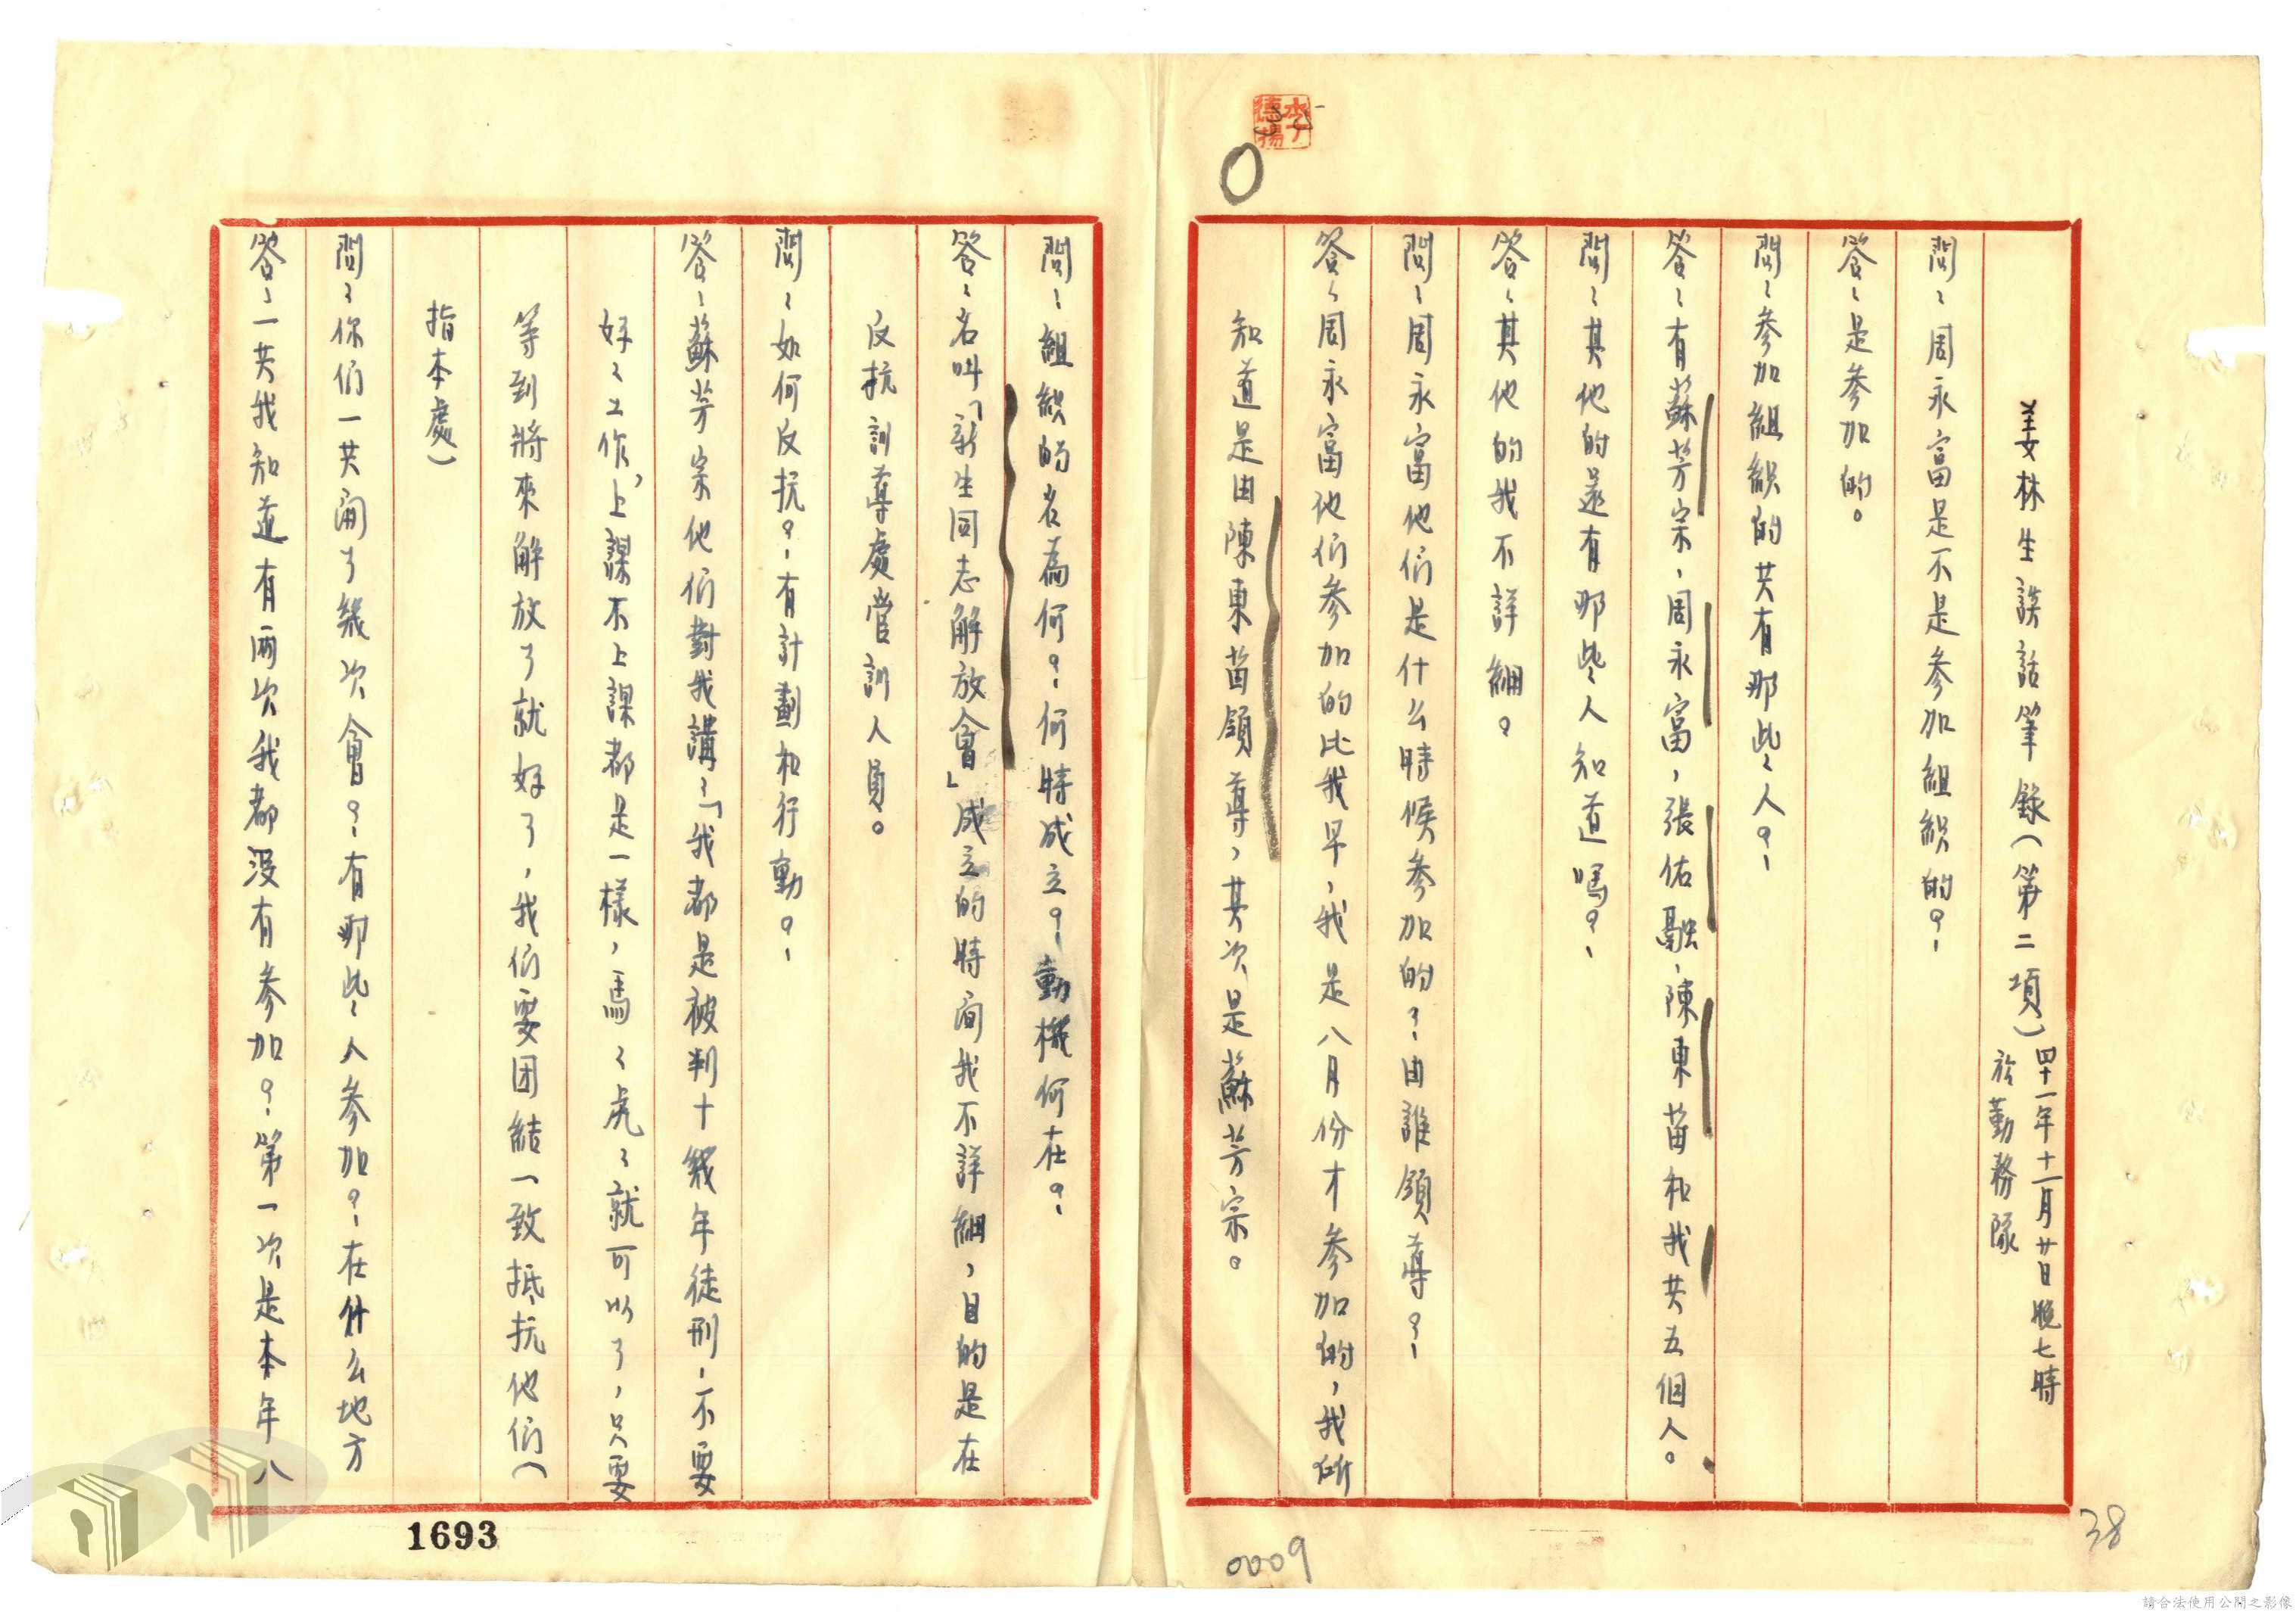 姜林生談話筆錄(第二項)
四十一年十一月廿日晚七時
於勤務隊
問:周永富是不是參加組織的?
答:是參加的。
問:參加組織的共有那些人?
答:有蘇芳宗,周永富,張佑融,陳東茵和我共五個人。
問:其他的還有那些人知道嗎?
答:其他的我不詳細。
問:周永富他们是什么時候參加的?由誰領導?
答:周永富他们參加的比我早,我是八月份才參加的,我所
知道是由陳東茵領導,其次是蘇芳宗。
問:組織的名為何?何時成立?動機何在?
答:名叫「新生同志解放會」成立的時间我不詳細,目的是在
反抗訓導處管訓人員。
問:如何反抗?有計劃和行動?
答:蘇芳宗他们對我講:「我都是被判十幾年徒刑,不要
好々工作,上課不上課都是一樣,馬々虎々就可以了,只要
等到將來解放了就好了,我们要团結一致抵抗他们(
指本處)
問:你们一共開了幾次會?有那些人參加?在什么地方
答:一共我知道有兩次我都沒有參加?第一次是本年八
1693
0009
38
李德揚
請合法使用公開之影像